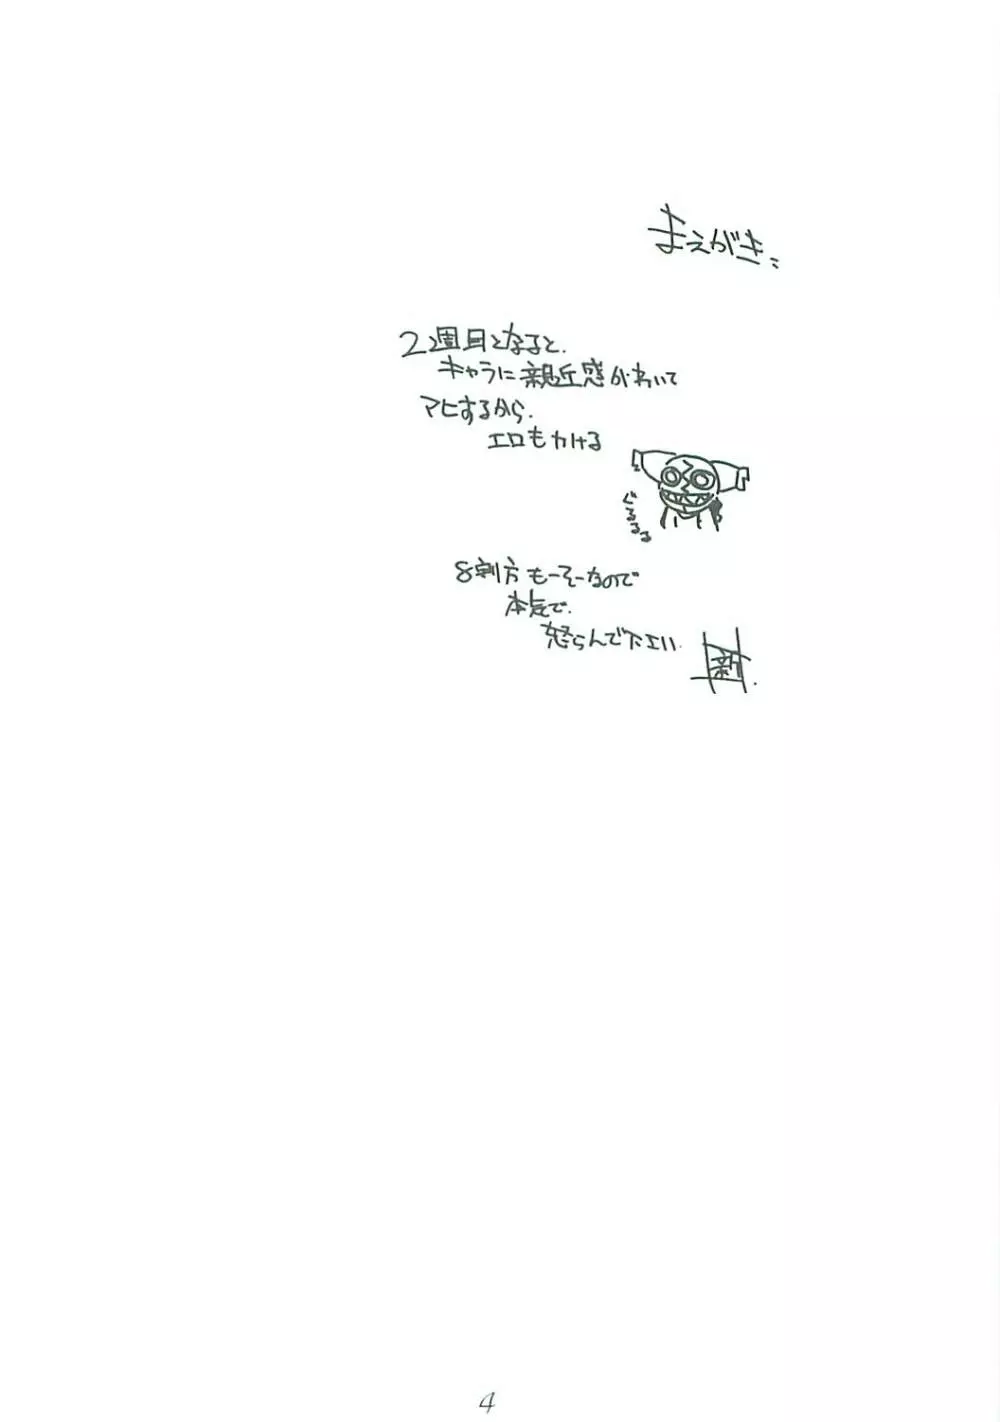 まえがき
2週目となると、
キャラに親近感がわいて
マヒするから、
エロもかける
ぐるるる
8割方もーそーなので
本気で、
怒らんで下エい.
新
4